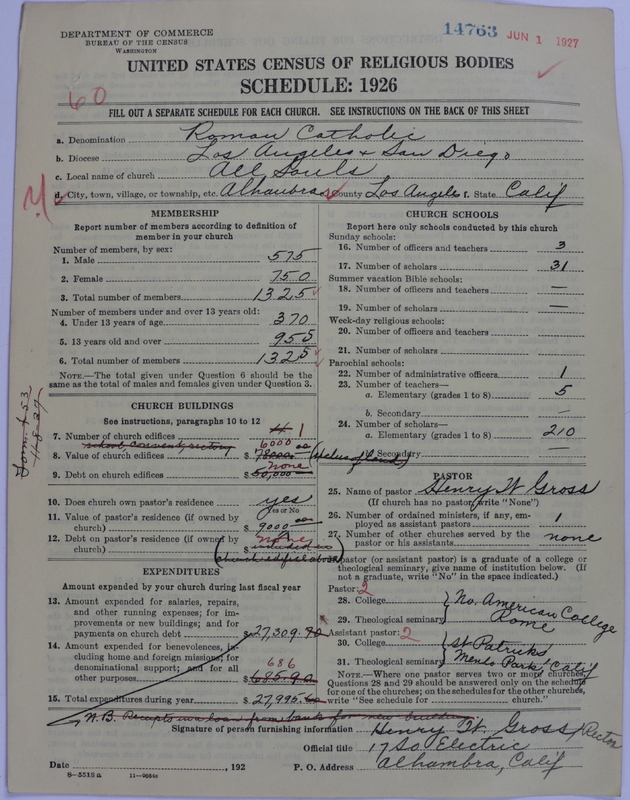 DEPARTMENT OF COMMERCE
BUREAU OF THE CENSUS
WASHINGTON
14763 JUN 1 1927
UNITED STATES CENSUS OF RELIGIOUS BODIES
SCHEDULE: 1926
60
FILL OUT A SEPARATE SCHEDULE FOR EACH CHURCH. SEE INSTRUCTIONS ON THE BACK OF THIS SHEET
a. Denomination Roman Catholic
b. Diocese Los Angeles & San Diego
c. Local name of church All Souls
d. City, town, village, or township, etc. Alhambra e. County Los Angeles f. State Calif
MEMBERSHIP
Report number of members according to definition of
member in your church
Number of members, by sex:
1. Male 575
2. Female 750
3. Total number of members 1325
Number of members under and over 13 years old:
4. Under 13 years of age 370
5. 13 years old and over 955
6. Total number of members 1325
NOTE.—The total given under Question 6 should be
same as the total of males and females given under Question 3.
CHURCH BUILDINGS
See instructions, paragraphs 10 to 12
7. Number of church edifices 4 1
school, convent, rectory 6000
8. Value of church edifices $ 78000.00 (value of land)
none
9. Debt on church edifices $ 50,000
10. Does church own pastor's residence yes
Yes or No
11. Value of pastor's residence (if owned by
church) $ 9000.00
12. Debt on pastor's residence (if owned by none
church) $ included in
church edifice above
EXPENDITURES
Amount expended by your church during last fiscal year
13. Amount expended for salaries, repairs,
and other running expenses; for im-
provements or new buildings; and for
payments on church debt $ 27,309.90
14. Amount expended for benevolences, in-
cluding home and foreign missions; for
denominational support; and for all 686
other purposes $ 685.90
15. Total expenditures during year $ 27,995.60
N.B. Receipts inc. loan from bank for new building
CHURCH SCHOOLS
Report here only schools conducted by this church
Sunday schools:
16. Number of officers and teachers 3
17. Number of scholars 31
Summer vacation Bible schools:
18. Number of officers and teachers —
19. Number of scholars —
Week-day religious schools:
20. Number of officers and teachers
21. Number of scholars
Parochial schools:
22. Number of administrative officers 1
23. Number of teachers—
a. Elementary (grades 1 to 8) 5
b. Secondary —
24. Number of scholars—
a. Elementary (grades 1 to 8) 210
b. Secondary —
PASTOR
25. Name of pastor Henry W Gross
(If church has no pastor, write "None")
26. Number of ordained ministers, if any, em-
ployed as assistant pastors 1
27. Number of other churches served by the
pastor or his assistants none
If pastor (or assistant pastor) is a graduate of a college or
theological seminary, give name of institution below. (If
not a graduate, write "No" in the space indicated.)
Pastor: 2
28. College } No. American College
29. Theological seminary } Rome
Assistant pastor: 2
30. College } St Patricks
31. Theological seminary } Menlo Park, Calif
NOTE.—Where one pastor serves two or more churches,
Questions 28 and 29 should be answered only on the schedule
for one of the churches; on the schedules for the other churches,
write "See schedule for church."
Signature of person furnishing information Henry W. Gross, Rector
Official title 17 So Electric
Date , 192 P. O. Address Alhambra, Calif
8—5518 a